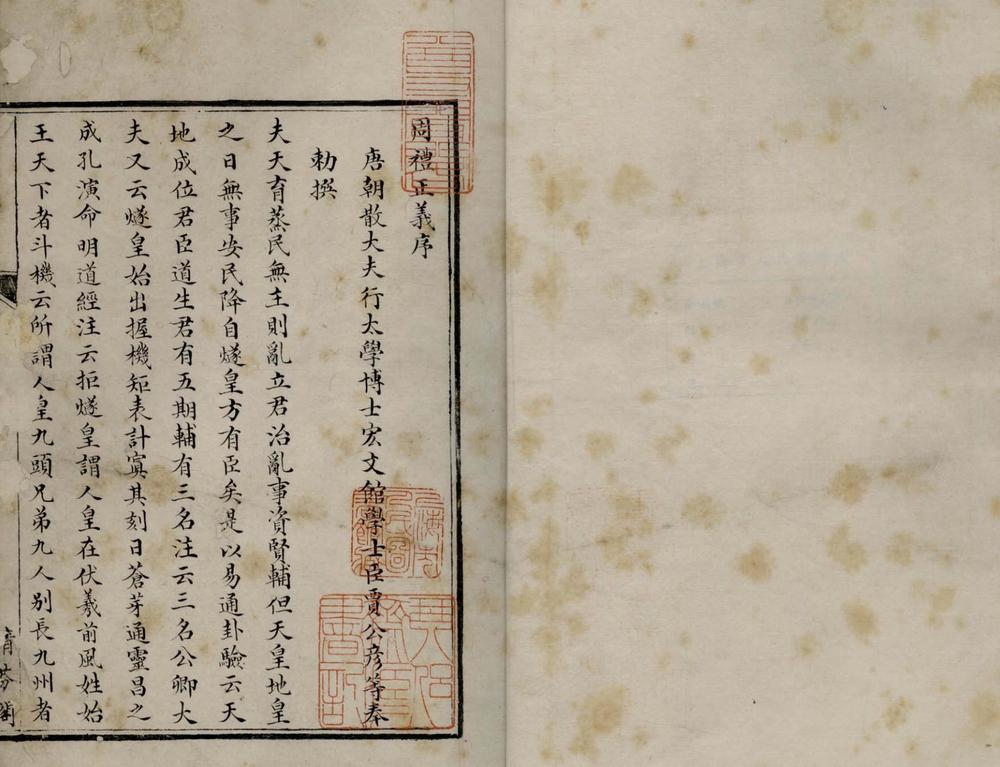 周禮正義序
唐朝散大夫行太學博士宏文館學士臣賈公彥等奉
勅撰
夫天育蒸民無主則亂立君治亂事資賢輔但天皇地皇
之日無事安民降自燧皇方有臣矣是以易通卦驗云天
地成位君臣道生君有五期輔有三名注云三名公卿大
夫又云燧皇始出握機矩表計寘其刻日蒼芽通靈昌之
成孔演命明道經注云拒燧皇謂人皇在伏羲前風姓始
王天下者斗機云所謂人皇九頭兄弟九人別長九州者